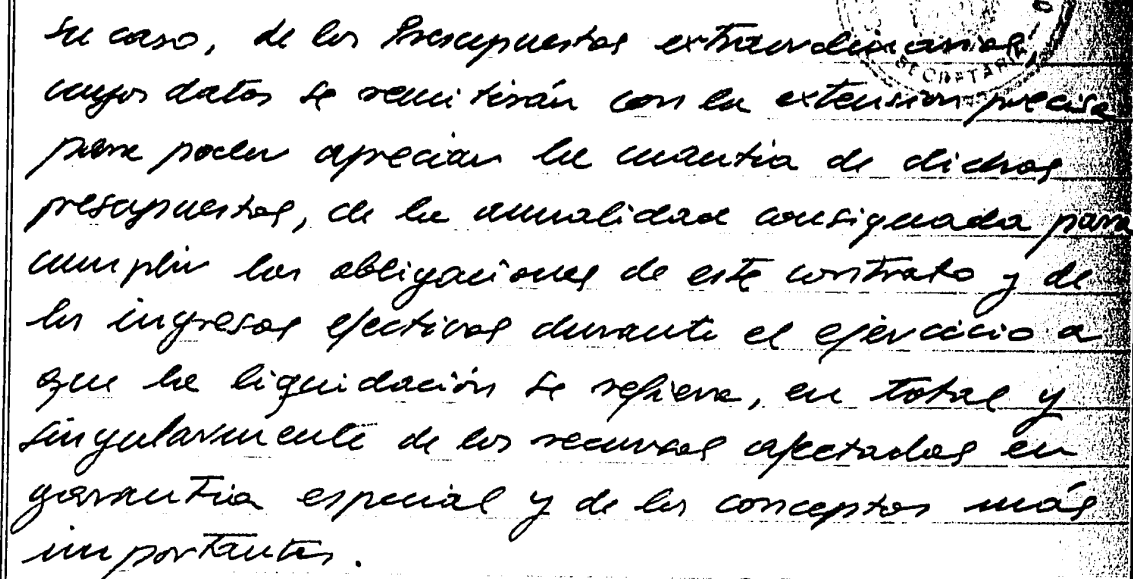 su caso, de los Presupuestos extraordinarios,
cuyos datos se remitirán con la extension precisa
para poder apreciar la cuantia de dichos
presupuestos, de la anualidad consignada para
cumplir las obligaciones de este contrato y de
los ingresos efectivos durante el ejercicio a
que la liquidación se refiere, en total y
singularmente de los recursos afectados en
garantia especial y de los conceptos más
importantes.
SECRETARIA